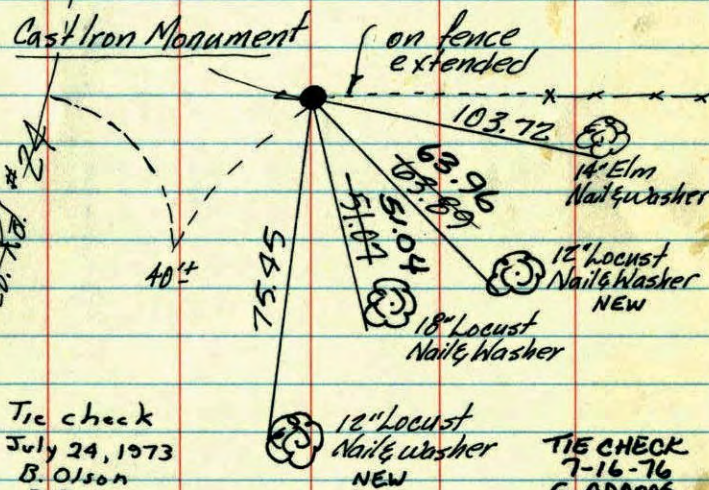 Cast Iron Monument
on fence
extended
103.72
14" Elm
Nail & Washer
63.96
63.89
51.04
51.07
12" Locust
Nail & Washer
NEW
75.45
40'±
18" Locust
Nail & Washer
Rd. #24
12" Locust
Nail & Washer
NEW
Tie check
July 24, 1973
B. Olson
TIE CHECK
7-16-76